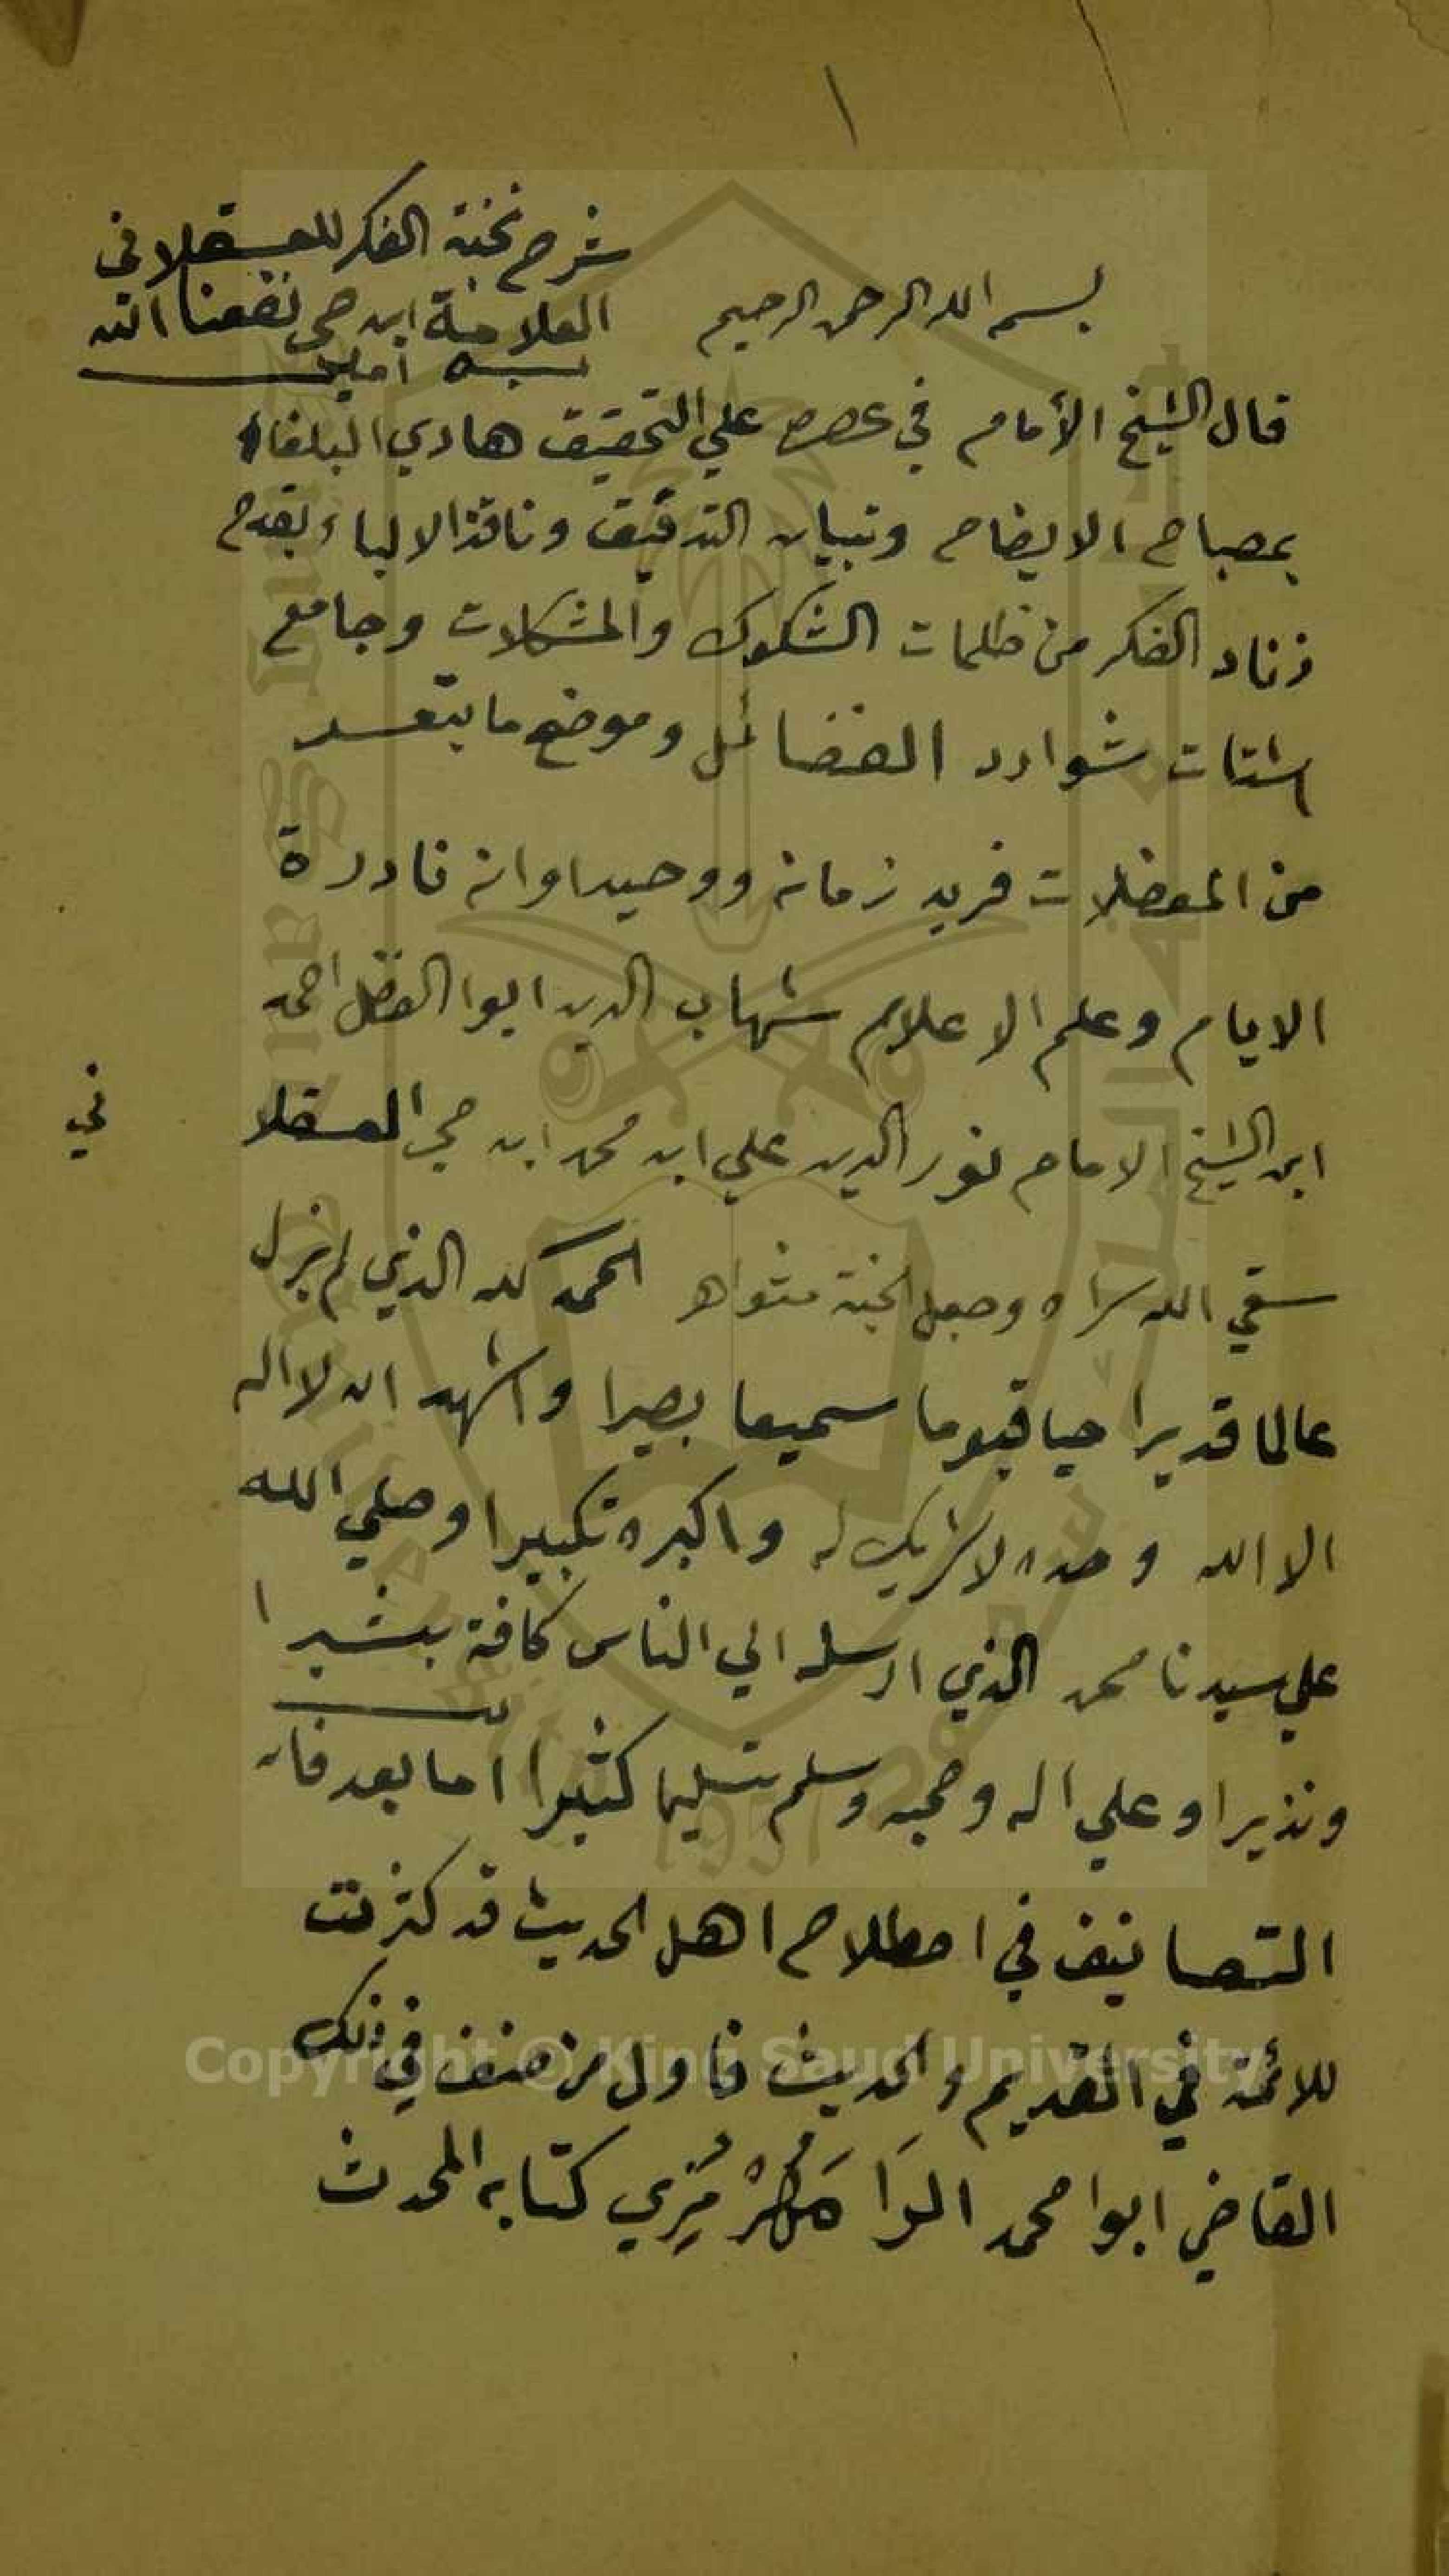 ١
شرح نخبة الفكر للعسقلاني
العلامة ابن حجر نفعنا الله
به امين
بسم الله الرحمن الرحيم
قال الشيخ الأمام في عصره علي التحقيق هادي البلغاء
بمصباح الايضاح وتبيان التدقيق وناقذ الالباء بقدح
زناد الفكر من ظلمات الشكوك والمشكلات وجامع
اشتات شوارد الفضائل وموضح ما يتعسر
من المعضلات فريد زمانه ووحيد اوانه نادرة
الايام وعلم الاعلام شهاب الدين ابوا الفضل احمد
ابن الشيخ الامام نور الدين علي ابن محمد ابن حجر العسقلا
ني
سقي الله ثراه وجعل الجنة مثواه الحمد لله الذي لم يزل
عالما قديرا حيا قيوما سميعا بصيرا واشهد ان لا اله
الا الله وحده لا شريك له واكبره تكبيرا وصلي الله
علي سيدنا محمد الذي ارسله الي الناس كافة بشيرا
ونذيرا وعلي اله وصحبه وسلم تسليما كثيرا اما بعد فان
التصانيف في اصطلاح اهل الحديث قد كثرت
للائمة في القديم والحديث فاول من صنف في ذلك
القاضي ابوا محمد الرَا مَهُرْ مُزِي كتابه المحدث
Copyright © King Saud University
1957